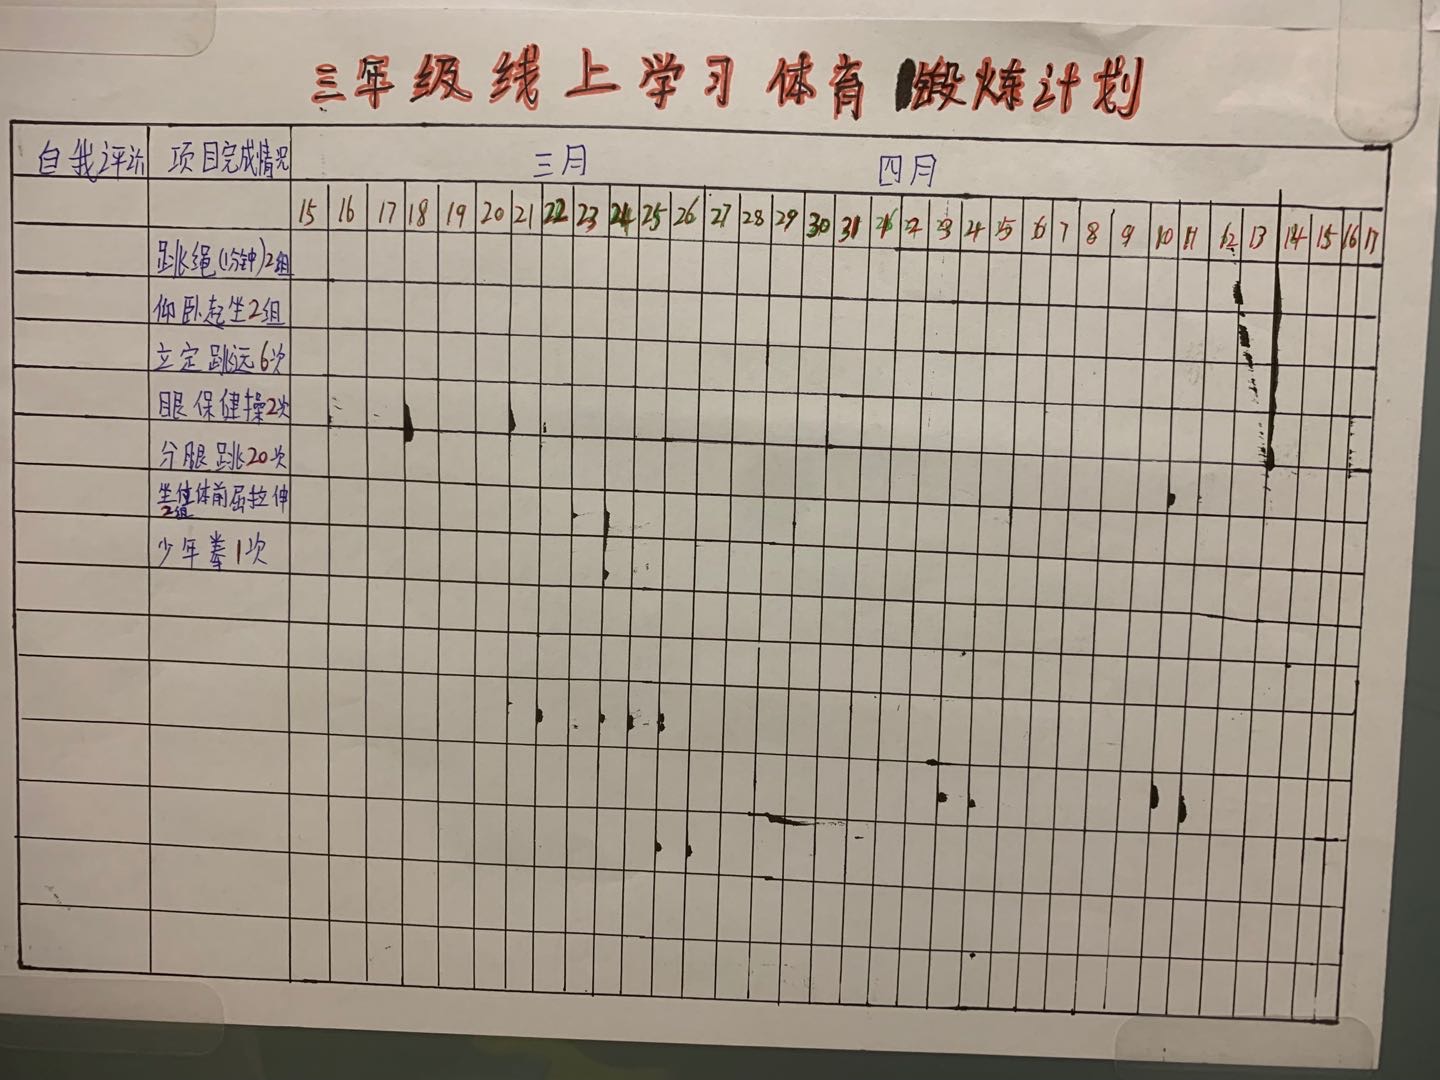 三年级线上学习体育锻炼计划
自我评价 项目完成情况 三月 四月
15 16 17 18 19 20 21 22 23 24 25 26 27 28 29 30 31 1 2 3 4 5 6 7 8 9 10 11 12 13 14 15 16 17
跳绳(1分钟)2组
仰卧起坐2组
立定跳远6次
眼保健操2次
分腿跳20次
坐位体前屈拉伸
2组
少年拳1次